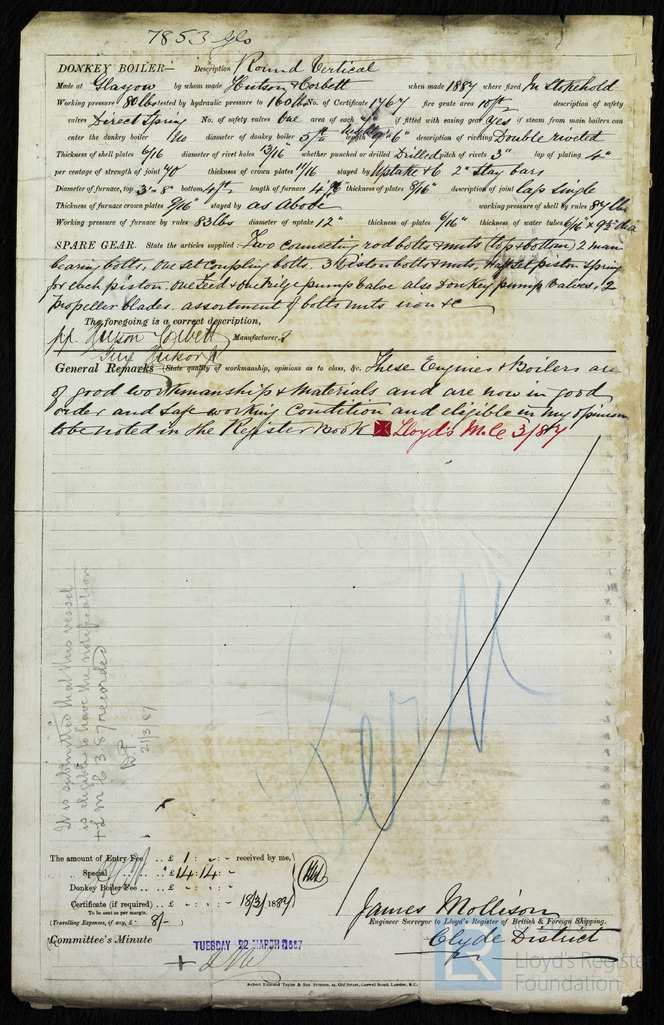 7853 Gls
DONKEY BOILER— Description Round Vertical
Made at Glasgow by whom made Hutson & Corbett when made 1887 where fixed In Stokehold
Working pressure 80 lbs tested by hydraulic pressure to 160 lbs No. of Certificate 1767 fire grate area 10 ft² description of safety
valves Direct Spring No. of safety valves One area of each if fitted with easing gear Yes if steam from main boilers can
enter the donkey boiler No diameter of donkey boiler 5 ft length 9' 6" description of riveting Double riveted
Thickness of shell plates 6/16 diameter of rivet holes 13/16" whether punched or drilled Drilled pitch of rivets 3" lap of plating 4"
per centage of strength of joint 70 thickness of crown plates 7/16 stayed by Uptake & 6 2" Stay bars
Diameter of furnace, top 3' 8" bottom 4 ft length of furnace thickness of plates 8/16" description of joint lap single
Thickness of furnace crown plates 9/16" stayed by as above working pressure of shell by rules 87 lbs
Working pressure of furnace by rules 83 lbs diameter of uptake 12" thickness of plates 6/16" thickness of water tubes 6/16" × 9½ dia
SPARE GEAR. State the articles supplied Two connecting rod bolts & nuts (top & bottom) 2 main
bearing bolts, one set coupling bolts. 3 Piston bolts & nuts, piston spring
for each piston. one feed & one bilge pump valve also Donkey pump valves. 2
Propeller blades. assortment of bolts nuts iron &c
The foregoing is a correct description,
pp. Hutson & Corbett Manufacturer.
Guy Hutson Jr
General Remarks (State quality of workmanship, opinions as to class, &c. These Engines & Boilers are
of good workmanship & materials and are now in good
order and safe working condition and eligible in my opinion
to be noted in the Register Book Lloyd's M.C 3/87
It is submitted that this vessel
is eligible to have the notification
+ L M C 3 87 recorded
21/3/87
The amount of Entry Fee .. £ 1 : - : - received by me,
Special .. .. £ 14 : 14 : -
Donkey Boiler Fee .. .. £ - : - : -
Certificate (if required) .. £ - : - : - 18/3/1887
To be sent as per margin.
(Travelling Expenses, if any, £ 8/-
James Mollison
Engineer Surveyor to Lloyd's Register of British & Foreign Shipping.
Clyde District
Committee's Minute
TUESDAY 22 MARCH 1887
Robert Edmund Taylor & Son Printers, 19, Old Street, Goswell Road, London, E.C.
Lloyd's Register
Foundation